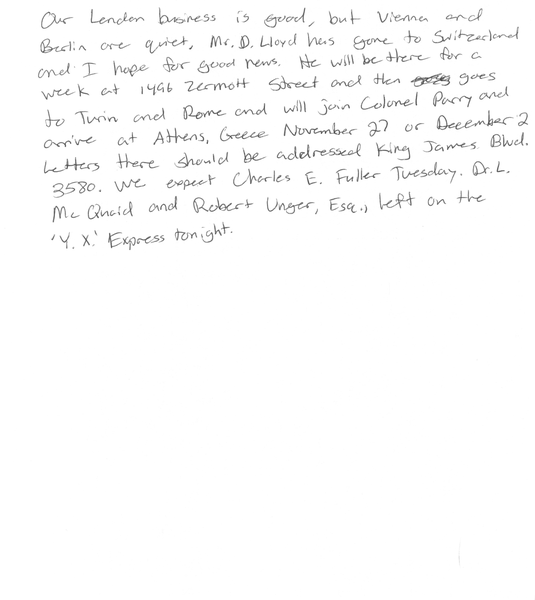 Our London business is good, but Vienna and
Berlin are quiet, Mr. D. Lloyd has gone to Switzerland
and I hope for good news. He will be there for a
week at 1496 Zermott Street and then goes
to Turin and Rome and will join Colonel Parry and
arrive at Athens, Greece November 27 or December 2
Letters there should be addressed King James Blvd.
3580. We expect Charles E. Fuller Tuesday. Dr. L.
Mc Quaid and Robert Unger, Esq., left on the
'Y. X.' Express tonight.